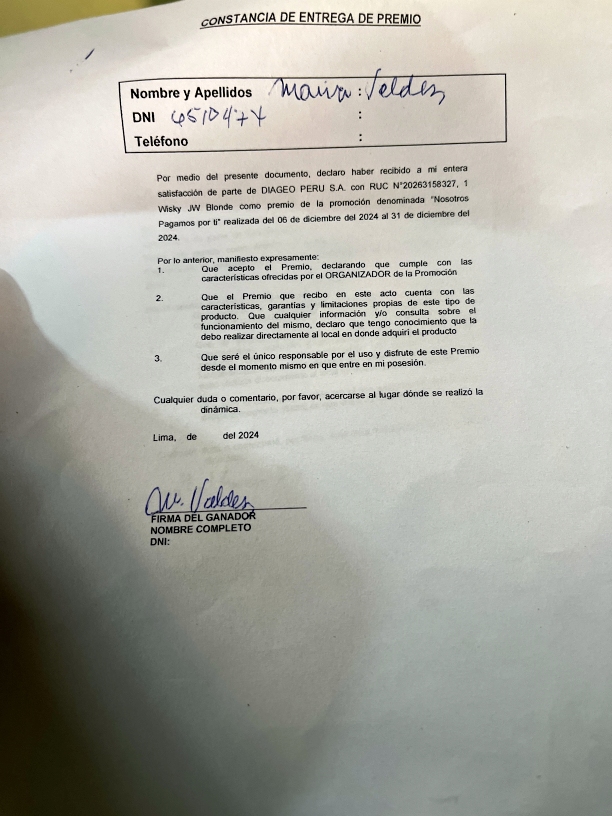 CONSTANCIA DE ENTREGA DE PREMIO
Nombre y Apellidos : Valdez
DNI :
Teléfono :
Por medio del presente documento, declaro haber recibido a mi entera
satisfacción de parte de DIAGEO PERU S.A. con RUC N°20263158327, 1
Wisky JW Blonde como premio de la promoción denominada "Nosotros
Pagamos por ti" realizada del 06 de diciembre del 2024 al 31 de diciembre del
2024.
Por lo anterior, manifiesto expresamente:
1. Que acepto el Premio, declarando que cumple con las
características ofrecidas por el ORGANIZADOR de la Promoción
2. Que el Premio que recibo en este acto cuenta con las
características, garantías y limitaciones propias de este tipo de
producto. Que cualquier información y/o consulta sobre el
funcionamiento del mismo, declaro que tengo conocimiento que la
debo realizar directamente al local en donde adquirí el producto
3. Que seré el único responsable por el uso y disfrute de este Premio
desde el momento mismo en que entre en mi posesión.
Cualquier duda o comentario, por favor, acercarse al lugar dónde se realizó la
dinámica.
Lima, de del 2024
M. Valdez
FIRMA DEL GANADOR
NOMBRE COMPLETO
DNI: